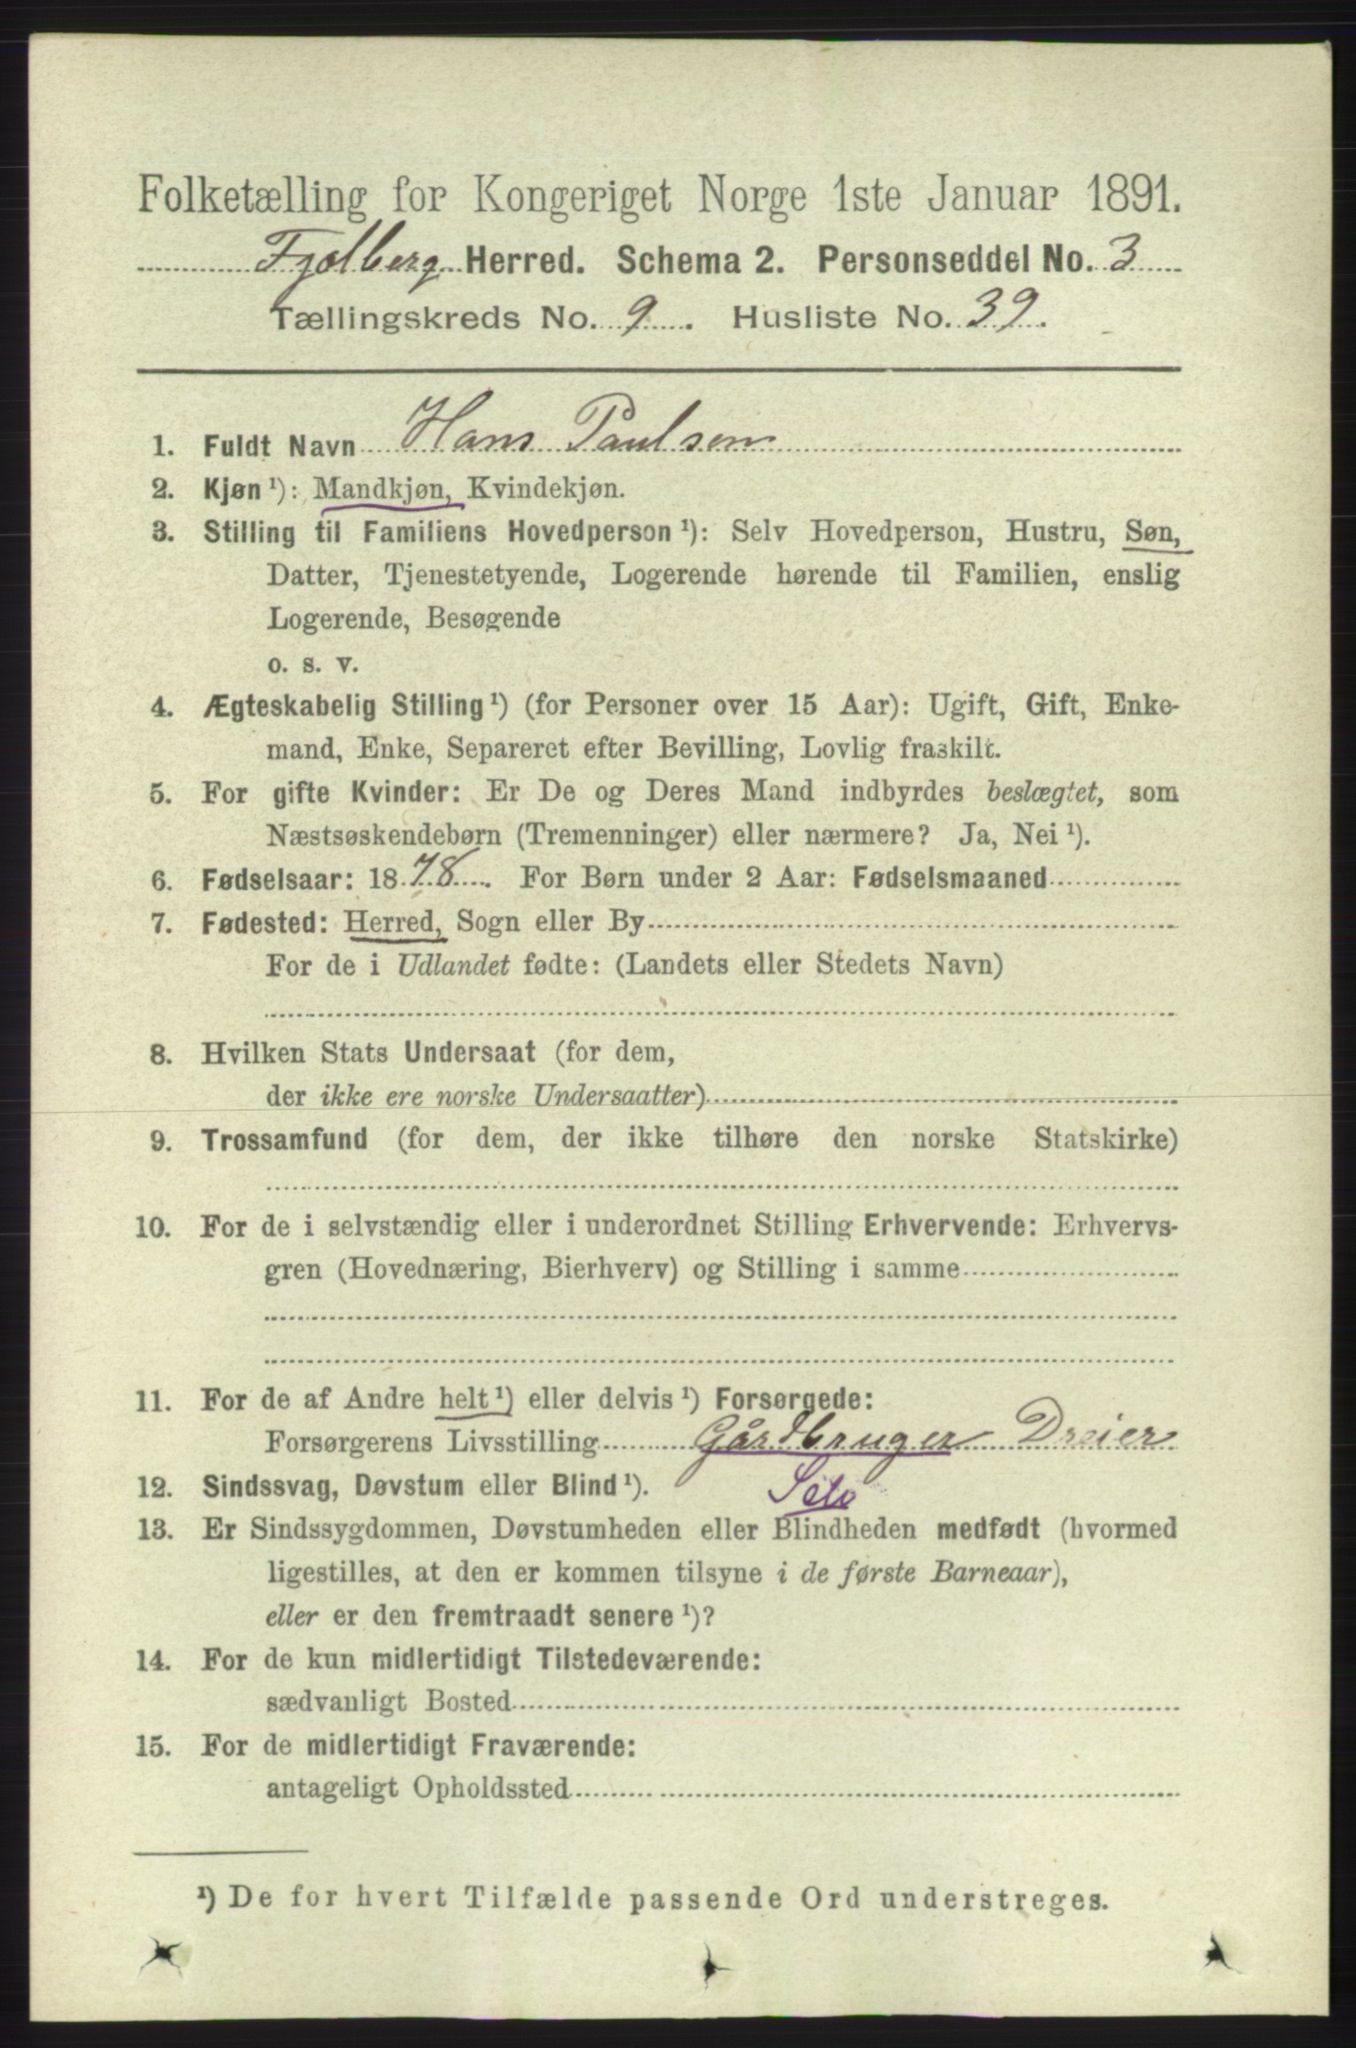 Folketælling for Kongeriget Norge 1ste Januar 1891.
Fjelberg Herred. Schema 2. Personseddel No. 3
Tællingskreds No. 9. Husliste No. 39.
1. Fuldt Navn Hans Paulsen
2. Kjøn ¹): Mandkjøn, Kvindekjøn.
3. Stilling til Familiens Hovedperson ¹): Selv Hovedperson, Hustru, Søn,
Datter, Tjenestetyende, Logerende hørende til Familien, enslig
Logerende, Besøgende
o. s. v.
4. Ægteskabelig Stilling ¹) (for Personer over 15 Aar): Ugift, Gift, Enke-
mand, Enke, Separeret efter Bevilling, Lovlig fraskilt.
5. For gifte Kvinder: Er De og Deres Mand indbyrdes beslægtet, som
Næstsøskendebørn (Tremenninger) eller nærmere? Ja, Nei ¹).
6. Fødselsaar: 1878. For Børn under 2 Aar: Fødselsmaaned
7. Fødested: Herred, Sogn eller By
For de i Udlandet fødte: (Landets eller Stedets Navn)
8. Hvilken Stats Undersaat (for dem,
der ikke ere norske Undersaatter)
9. Trossamfund (for dem, der ikke tilhøre den norske Statskirke)
10. For de i selvstændig eller i underordnet Stilling Erhvervende: Erhvervs-
gren (Hovednæring, Bierhverv) og Stilling i samme
11. For de af Andre helt ¹) eller delvis ¹) Forsørgede:
Forsørgerens Livsstilling Gårdbruger Dreier
12. Sindssvag, Døvstum eller Blind ¹). Selv
13. Er Sindssygdommen, Døvstumheden eller Blindheden medfødt (hvormed
ligestilles, at den er kommen tilsyne i de første Barneaar),
eller er den fremtraadt senere ¹)?
14. For de kun midlertidigt Tilstedeværende:
sædvanligt Bosted
15. For de midlertidigt Fraværende:
antageligt Opholdssted
¹) De for hvert Tilfælde passende Ord understreges.